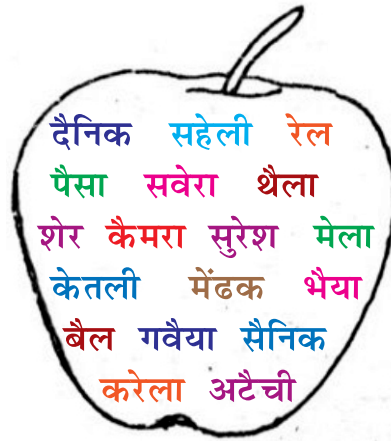 दैनिक सहेली रेल
पैसा सवेरा थैला
शेर कैमरा सुरेश मेला
केतली मेंढक भैया
बैल गवैया सैनिक
करेला अटैची